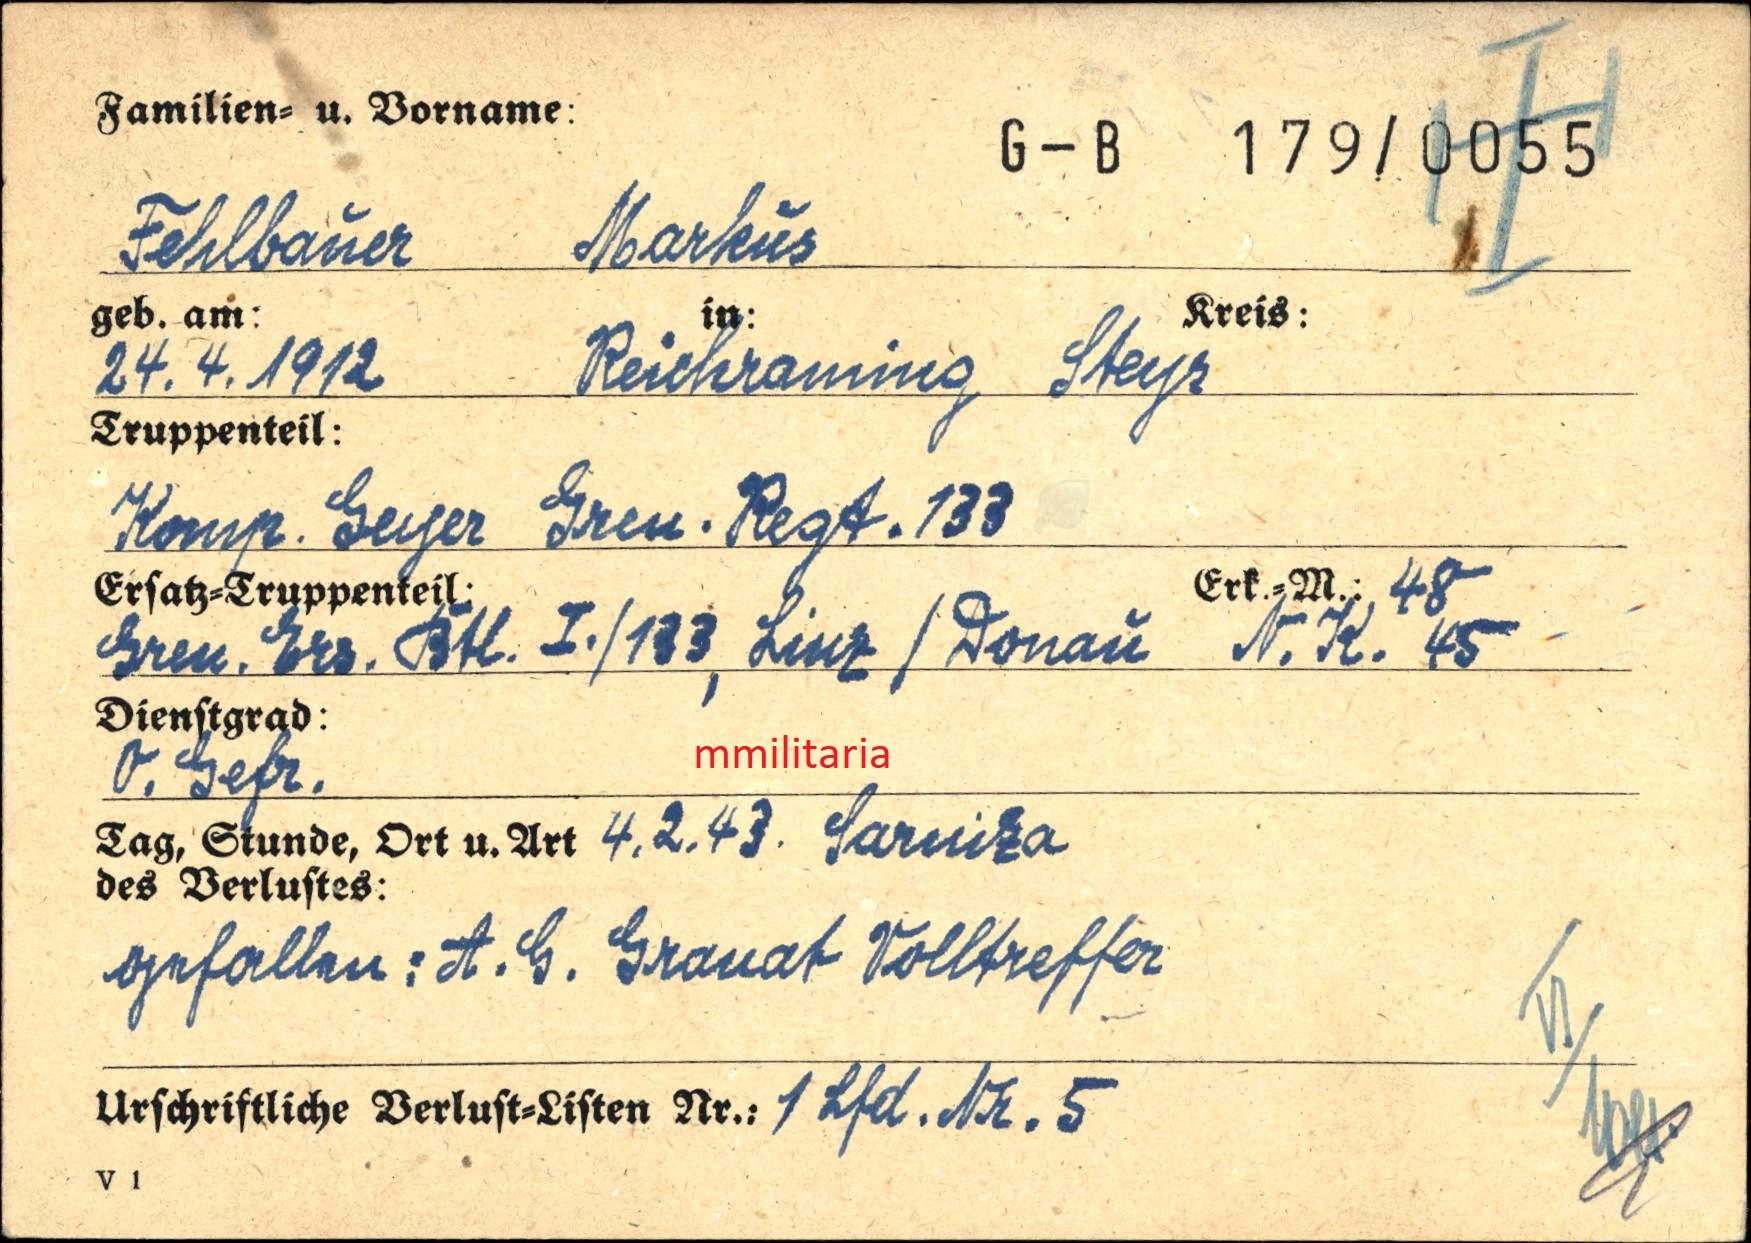 Familien- u. Vorname:
G-B 179/0055
Fehlbauer Markus
geb. am: in: Kreis:
24. 4. 1912 Reichraming Steyr
Truppenteil:
Komp. Geyer Gren. Regt. 133
Ersatz-Truppenteil: Erk.-M.: 48
Gren. Ers. Btl. I./133, Linz / Donau N. K. 45
Dienstgrad:
O. Gefr.
mmilitaria
Tag, Stunde, Ort u. Art 4.2.43. Sarniza
des Verlustes:
gefallen: A. G. Granat Volltreffer
Urschriftliche Verlust-Listen Nr.: 1 Lfd. Nr. 5
V 1